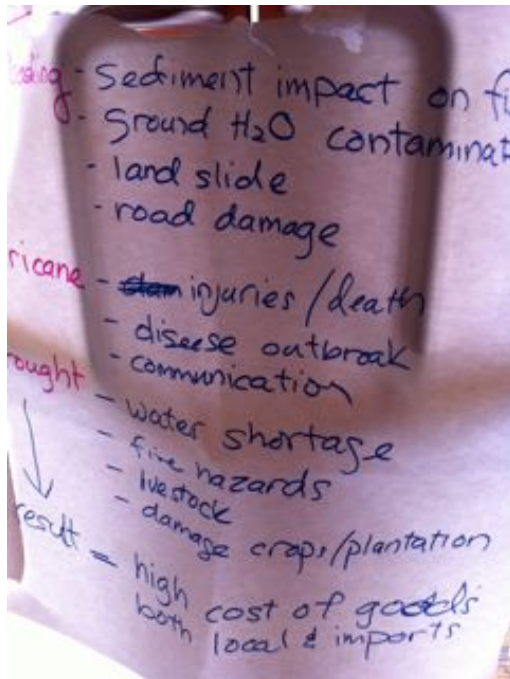 oding - Sediment impact on fi
- Ground H₂O contaminat
- land slide
- road damage
ricane - injuries/death
- disease outbroak
- communication
rought - water shortage
- fire hazards
- livestock
- damage crops/plantation
result = high cost of goods
both local & imports